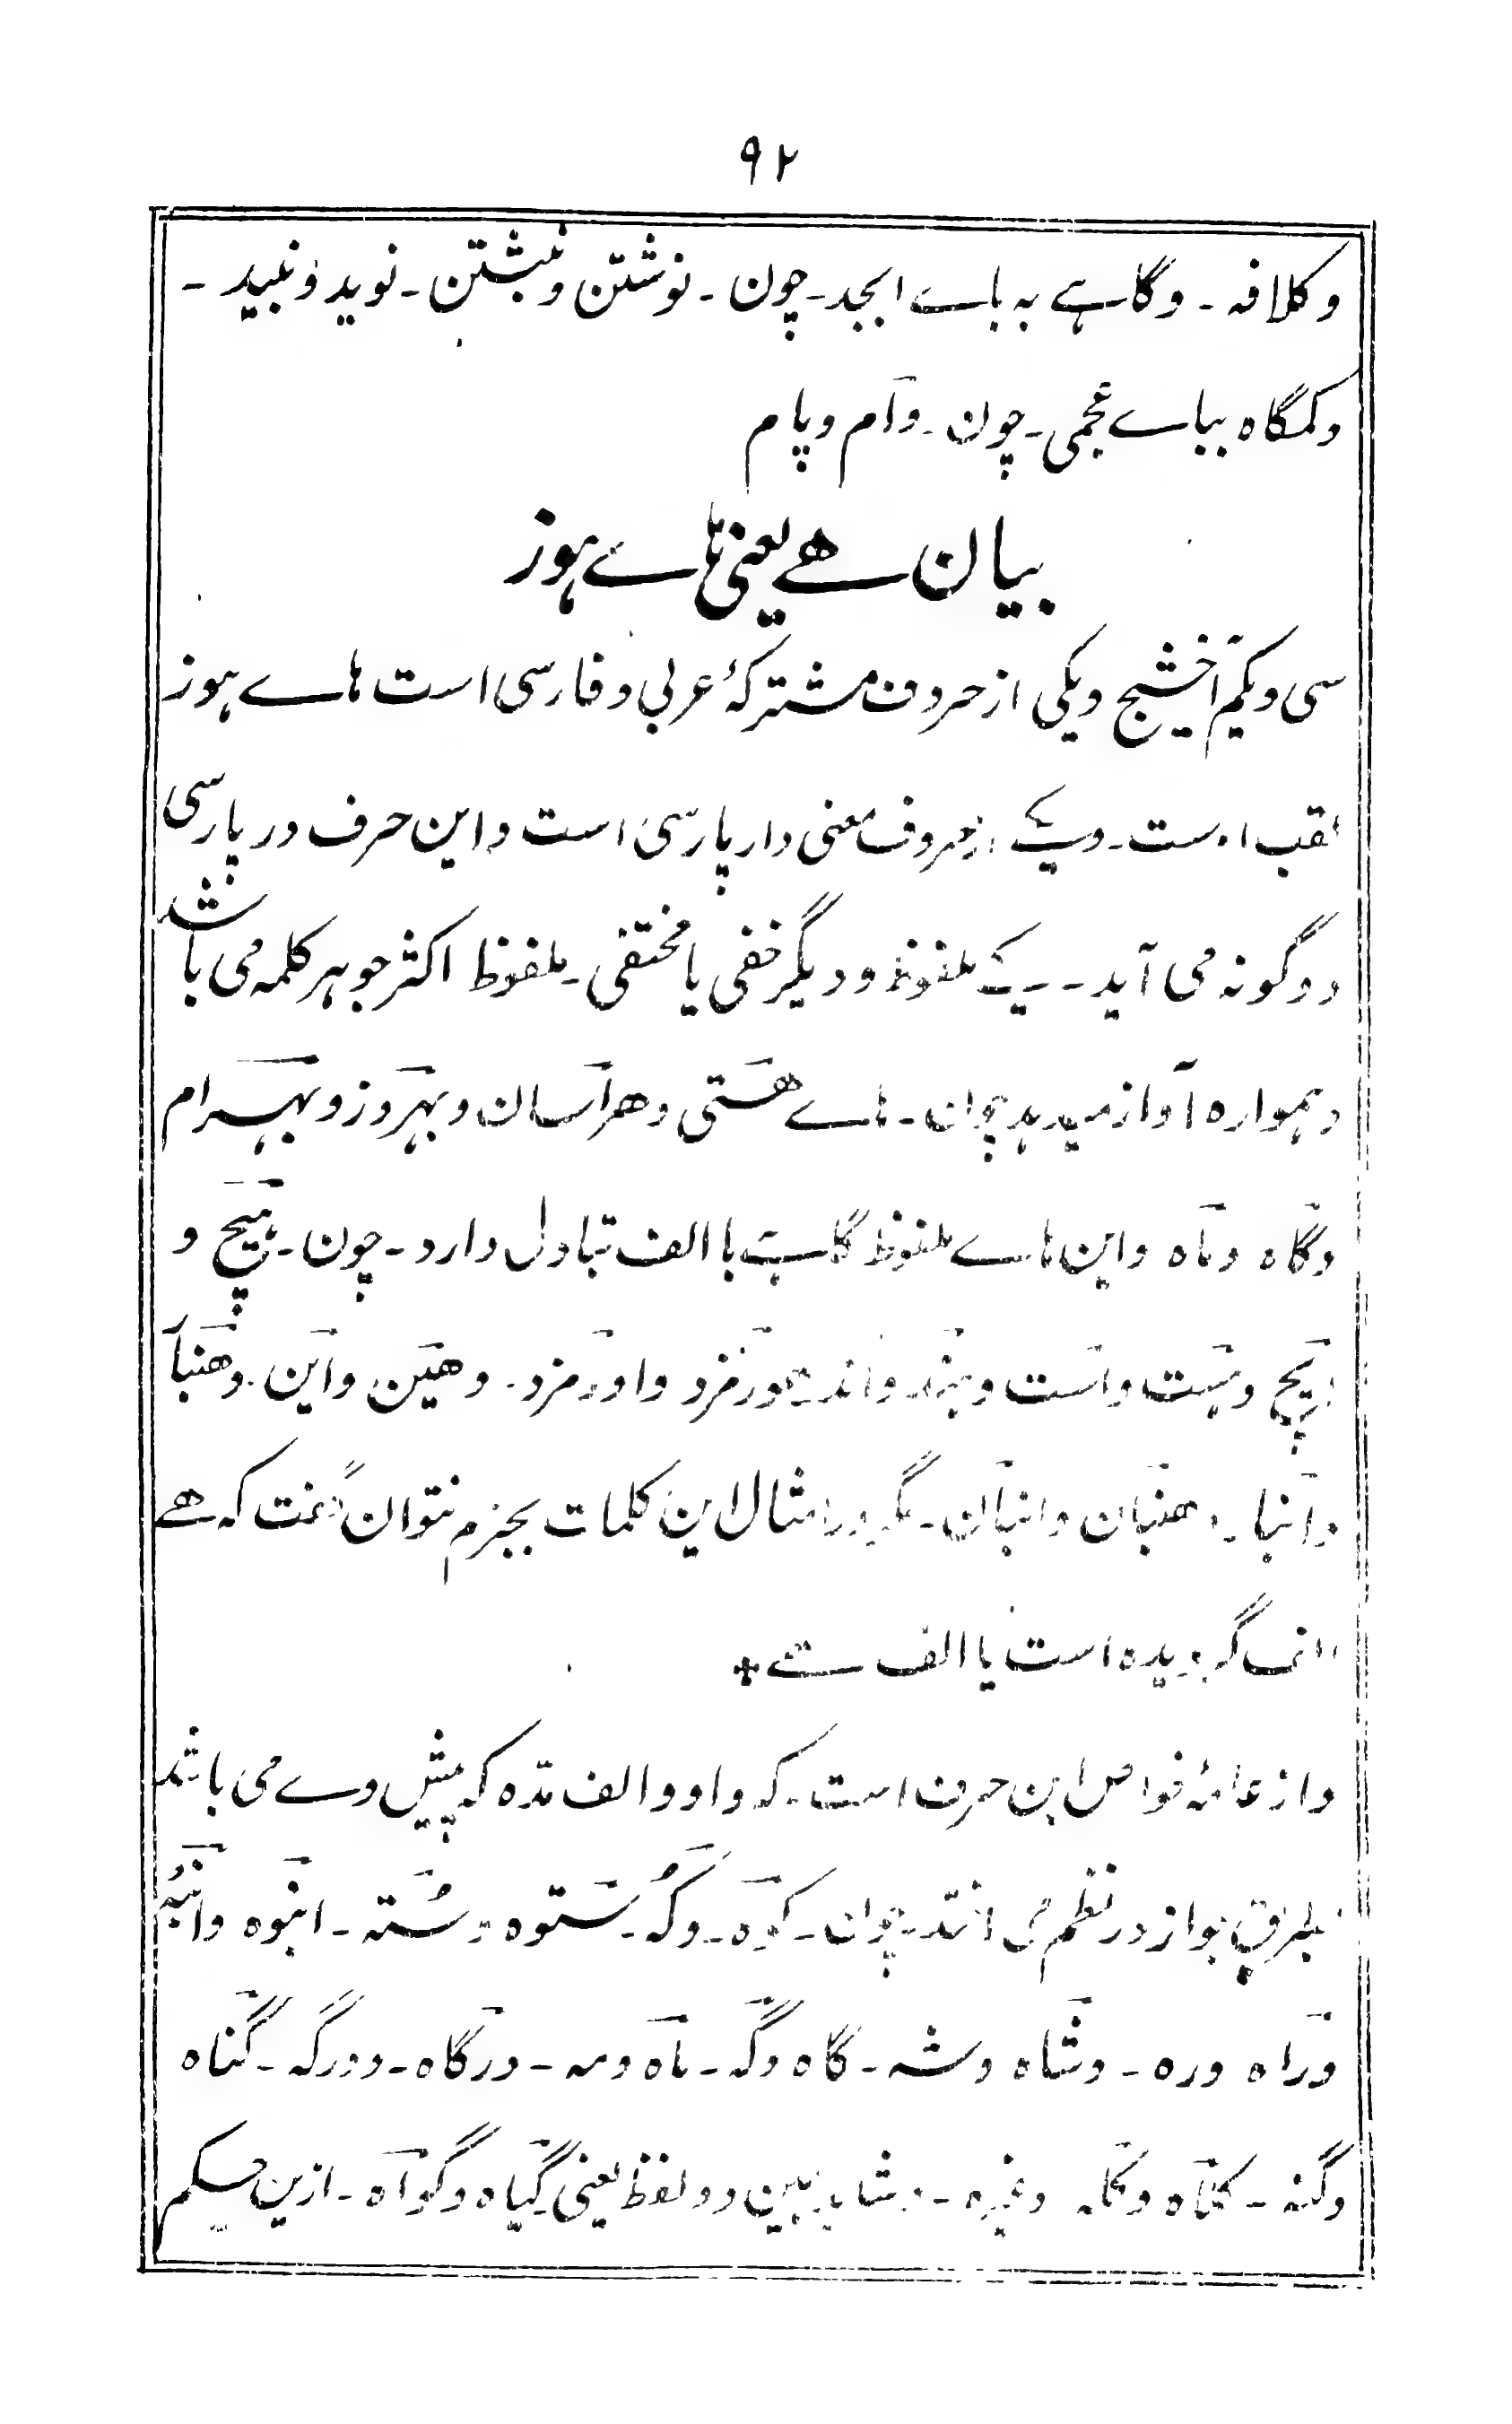 ۹۲
و کلافه ۔ و گاہے بہ باے ابجد ۔ چون ۔ نوشتن و نبشتن ۔ نوید و نبید ۔
و کمگاہ بباے عجمی ۔ چون ۔ وام و پام
بیان ھے یعنی ہاے ہوز
سی و یکم آخشیج و یکی از حروف مشترکۂ عربی و فارسی است ہاے ہوز
لقب اوست ۔ ویکے از حروف معنی دار پارسی است و این حرف در پارسی
دو گونہ می آید ۔ یکے ملفوظ و دیگر خفی یا مختفی ۔ ملفوظ اکثر جوہر کلمہ می باشد
و ہموارہ آواز میدہد چون ۔ ہاے ھستی و ھراسان و بہروز و بہرام
و گاہ و ماہ و این ہاے ملفوظ گاہے با الف تبادل دارد ۔ چون ۔ ہیچ و
ایچ و ہست و است و ہند و اند ھورمزد و اورمزد ۔ و ھین و این ۔ و ھنبار
و انبار و ھنبان و انبان ۔ مگر در امثال این کلمات بجزم نتوان گفت کہ ھے
الف گردیدہ است یا الف ھے +
و از عامۂ خواص این حرف است ۔ کہ واو و الف مدہ کہ پیش وے می باشد
بطریق جواز در نظم می افتد چون ۔ کوہ ۔ و کہ ۔ ستوہ و ستہ ۔ انبوہ و انبہ
و راہ و رہ ۔ و شاہ و شہ ۔ گاہ و گہ ۔ ماہ و مہ ۔ درگاہ ۔ و درگہ ۔ گناہ
و گنہ ۔ کلاہ و کلہ وغیرہ ۔ و شاید ہمین دو لفظ یعنی گیاہ و گواہ ۔ ازین حکم